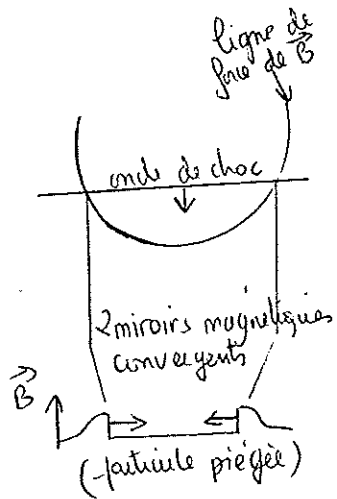 ligne de
force de B
onde de choc
2 miroirs magnétiques
convergents
B
(particule piégée)